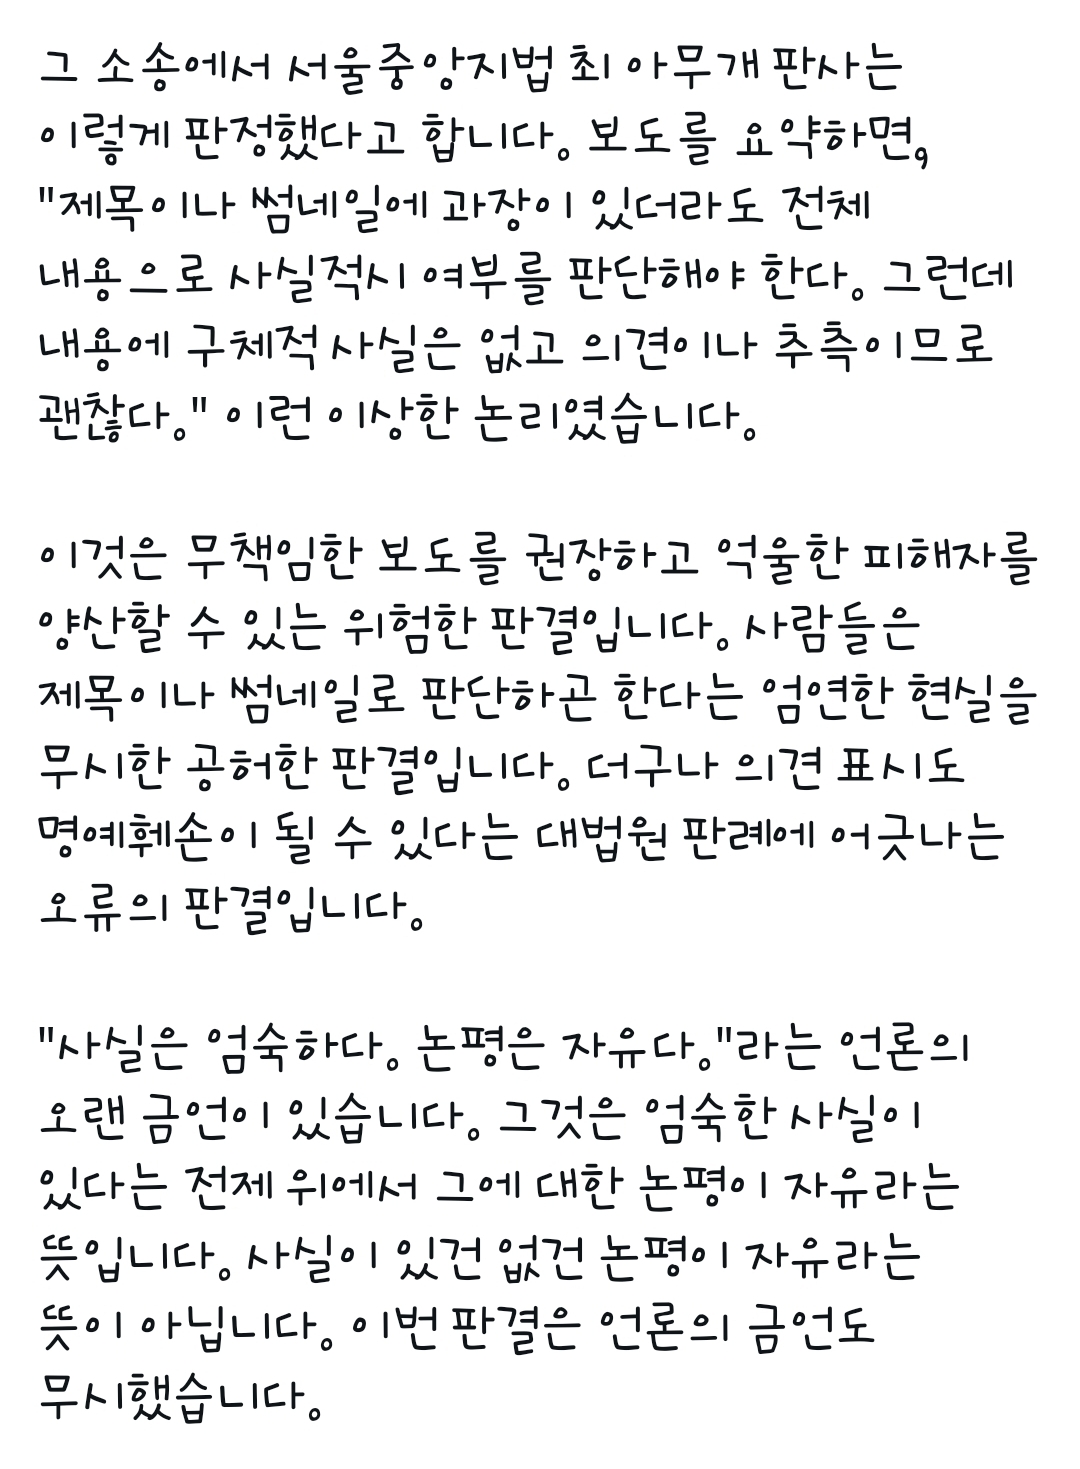 그 소송에서 서울중앙지법 최 아무개 판사는
이렇게 판정했다고 합니다. 보도를 요약하면,
"제목이나 썸네일에 과장이 있더라도 전체
내용으로 사실적시 여부를 판단해야 한다. 그런데
내용에 구체적 사실은 없고 의견이나 추측이므로
괜찮다." 이런 이상한 논리였습니다.
이것은 무책임한 보도를 권장하고 억울한 피해자를
양산할 수 있는 위험한 판결입니다. 사람들은
제목이나 썸네일로 판단하곤 한다는 엄연한 현실을
무시한 공허한 판결입니다. 더구나 의견 표시도
명예훼손이 될 수 있다는 대법원 판례에 어긋나는
오류의 판결입니다.
"사실은 엄숙하다. 논평은 자유다."라는 언론의
오랜 금언이 있습니다. 그것은 엄숙한 사실이
있다는 전제 위에서 그에 대한 논평이 자유라는
뜻입니다. 사실이 있건 없건 논평이 자유라는
뜻이 아닙니다. 이번 판결은 언론의 금언도
무시했습니다.